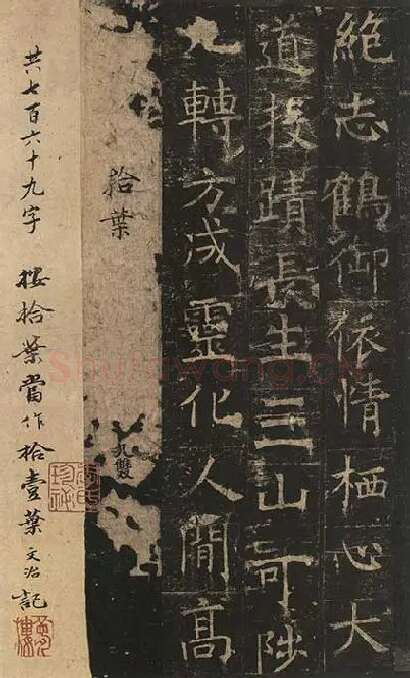 絶志鶴御依情栖心大
道投蹟長生三山可陟
九轉方成靈化人閒高
拾葉
九雙
共七百六十九字 按拾葉當作拾壹葉文治記